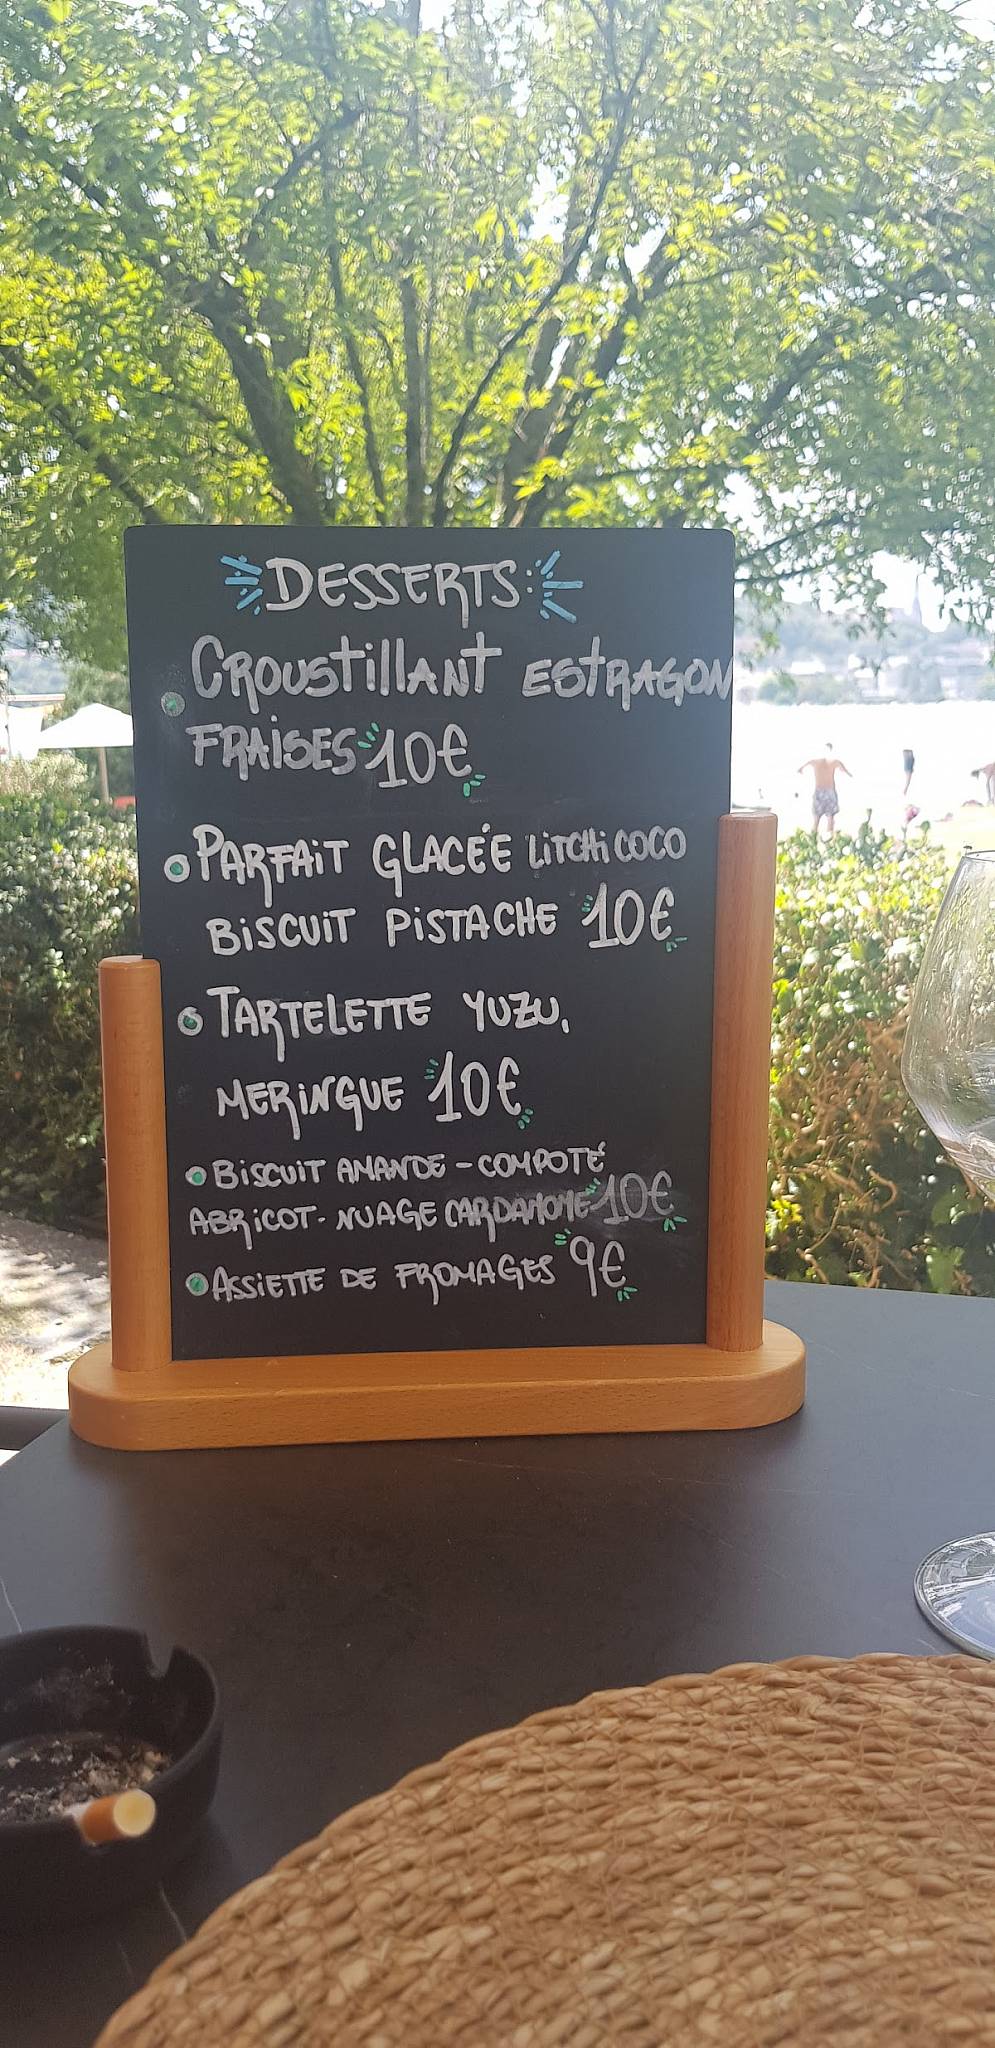 DESSERTS:
CROUSTILLANT ESTRAGON
FRAISES 10€
PARFAIT GLACÉE LITCHI COCO
BISCUIT PISTACHE 10€
TARTELETTE YUZU,
MERINGUE 10€
BISCUIT AMANDE - COMPOTÉ
ABRICOT - NUAGE CARDAMOME 10€
ASSIETTE DE FROMAGES 9€